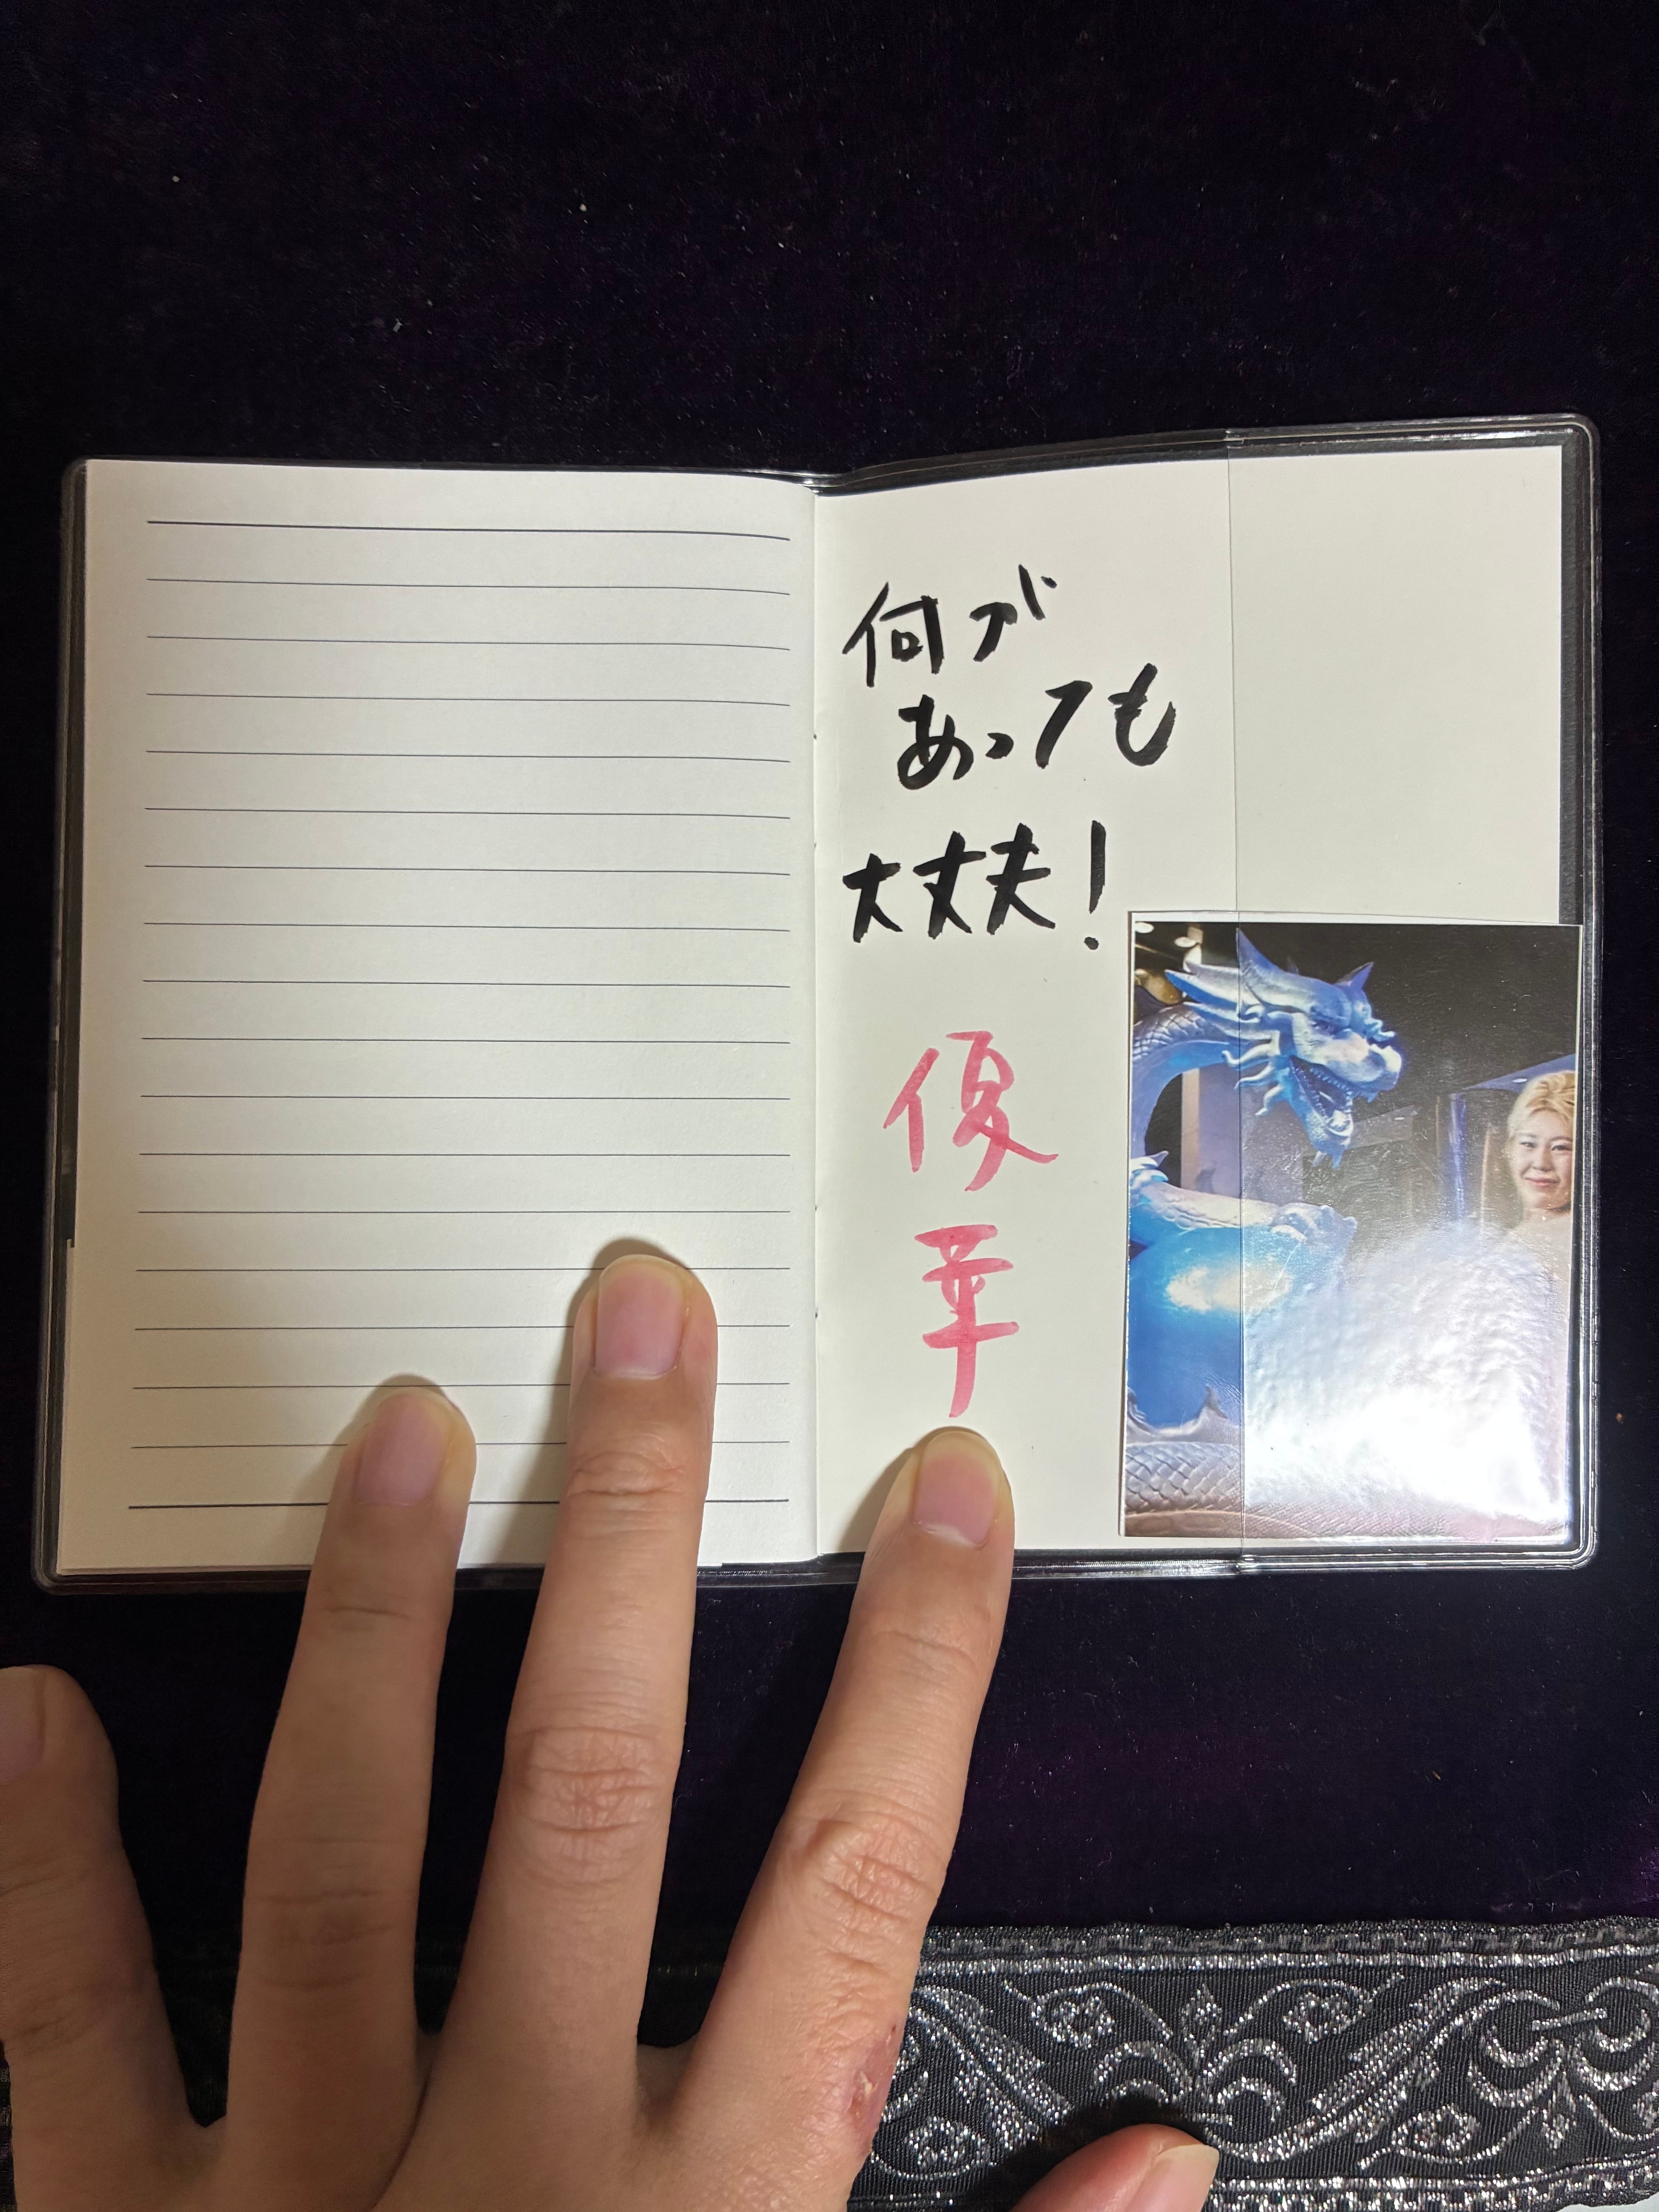 何が
あっても
大丈夫!
優華